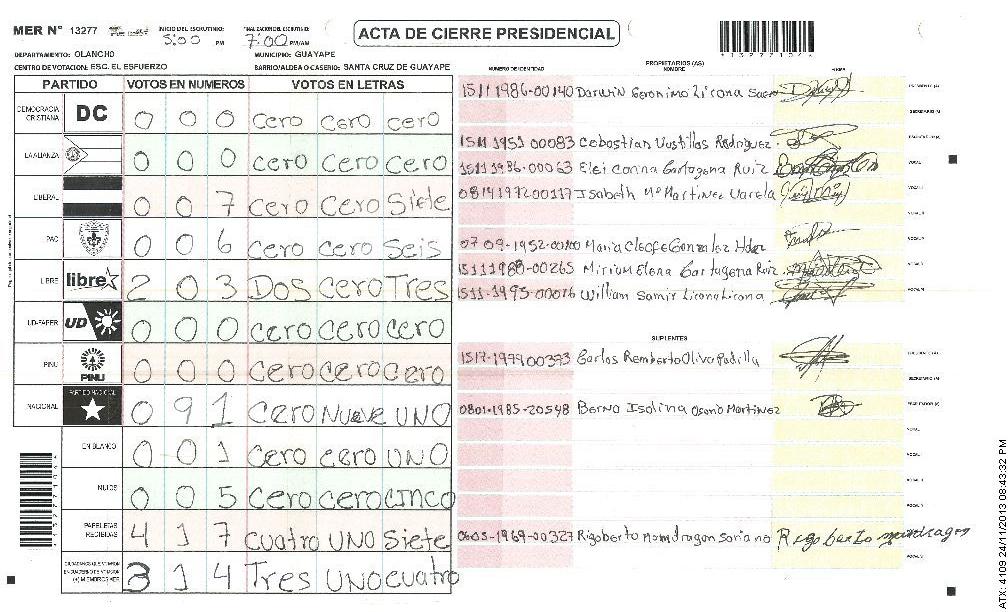 MER N° 13277 INICIO DEL ESCRUTINIO: 5:00 PM FINALIZACION DEL ESCRUTINIO: 7:00 PM/AM ACTA DE CIERRE PRESIDENCIAL
DEPARTAMENTO: OLANCHO MUNICIPIO: GUAYAPE
CENTRO DE VOTACION: ESC. EL ESFUERZO BARRIO/ALDEA O CASERIO: SANTA CRUZ DE GUAYAPE
PARTIDO VOTOS EN NUMEROS VOTOS EN LETRAS
DEMOCRACIA CRISTIANA DC 0 0 0 cero cero cero
LA ALIANZA 0 0 0 cero cero cero
LIBERAL 0 0 7 cero cero Siete
PAC 0 0 6 cero cero seis
LIBRE libre 2 0 3 Dos cero Tres
UD-FAPER UD 0 0 0 cero cero cero
PINU PINU 0 0 0 cero cero cero
NACIONAL PARTIDO NACIONAL 0 9 1 cero Nueve UNO
EN BLANCO 0 0 1 cero cero UNO
NULOS 0 0 5 cero cero cinco
PAPELETAS RECIBIDAS 4 1 7 cuatro UNO Siete
CIUDADANOS QUE VOTARON EN CUADERNO DE VOTACION (+) MIEMBROS MER 3 1 4 Tres UNO cuatro
NUMERO DE IDENTIDAD PROPIETARIOS (AS) NOMBRE FIRMA
1511 1986-00140 Darwin Geronimo Licona
1511 1951 00083 Cebastian Vustillos Rodriguez
1511 1986-00063 Cartagena Ruiz
Isabeth Mª Martinez Varela
0709-1952-00100 Maria Cleofe Gonzalez Hdez
1511 1988-00265 Mirium Elena Cartagena Ruiz
1511-1995-00076 William Samir Licona Licona
SUPLENTES
Carlos Remberto Oliva Padilla
0801-1985-20548 Berna Isolina Osorio Martinez
0605-1969-00327 Rigoberto Mondragon Soriano Rigoberto mondragon
ATX: 4109 24/11/2013 08:43:32 PM